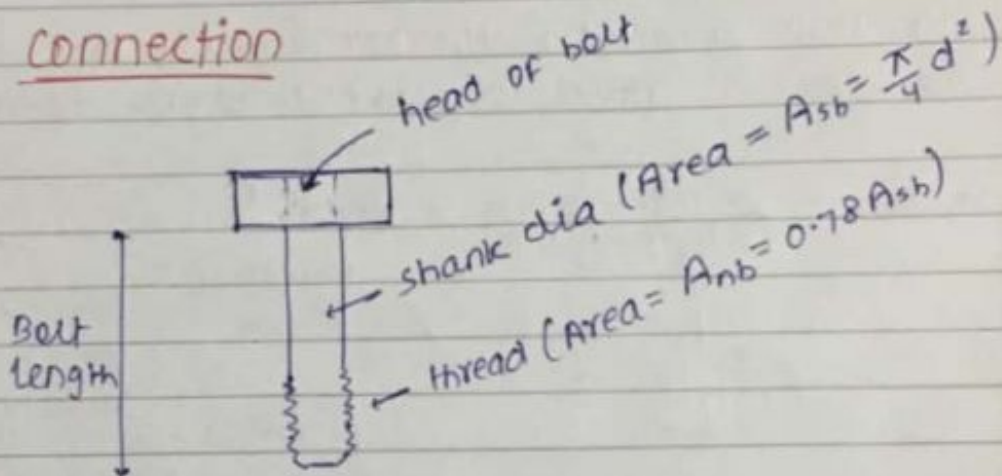 connection
head of bolt
shank dia (Area = Asb = π/4 d²)
thread (Area = Anb = 0.78 Asb)
Bolt
length